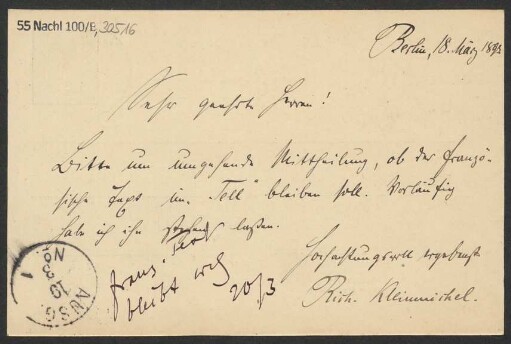 55 Nachl 100/B, 30516
Berlin, 18. März 1893
Sehr geehrte Herren!
Bitte um umgehende Mittheilung, ob der franzö-
sische Text im „Tell" bleiben soll. Vorläufig
habe ich ihn stehen lassen.
Hochachtungsvoll ergebenst
Rich. Kleinmichel.
franz. Text
bleibt weg
20/3
AUSG.
19
3
No
1